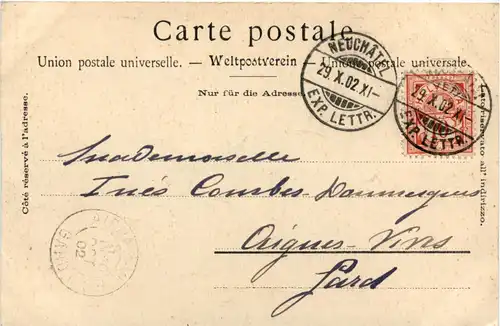 Carte postale.
Union postale universelle. — Weltpostverein — Unione postale universale.
Nur für die Adresse
Côté réservé à l'adresse.
Lato riservato all' indirizzo.
NEUCHÂTEL
29.X.02.XI–
EXP. LETTR.
29.X.02.XI–
EXP. LETTR.
Mademoiselle
Inés Combes Daumergues
Aigues-Vives
Gard
AIGUES
OCT
02
GARD